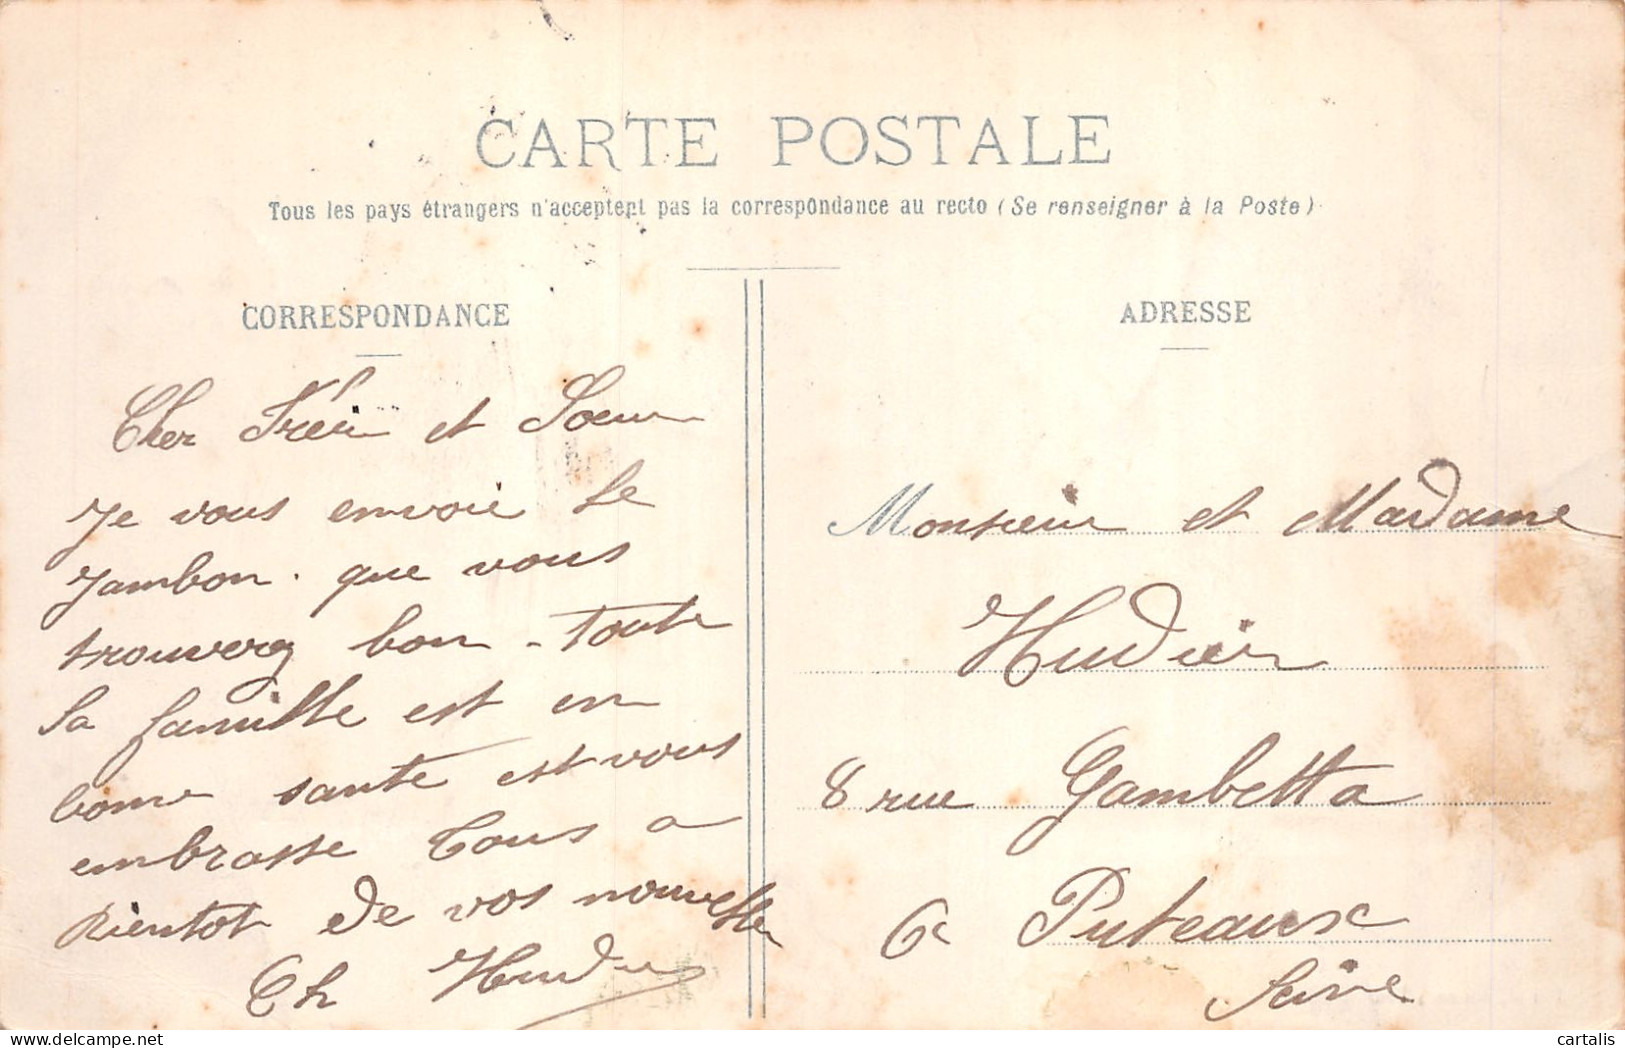 CARTE POSTALE
Tous les pays étrangers n'acceptent pas la correspondance au recto (Se renseigner à la Poste)
CORRESPONDANCE
Cher Frère et Soeur
Je vous envoie le
Jambon. que vous
trouverez bon - toute
la famille est en
bonne santé est vous
embrasse Tous a
Bientot de vos nouvelle
Ch
ADRESSE
Monsieur et Madame
Hudier
8 rue Gambetta
a Puteaux
Seine
delcampe.net
cartalis